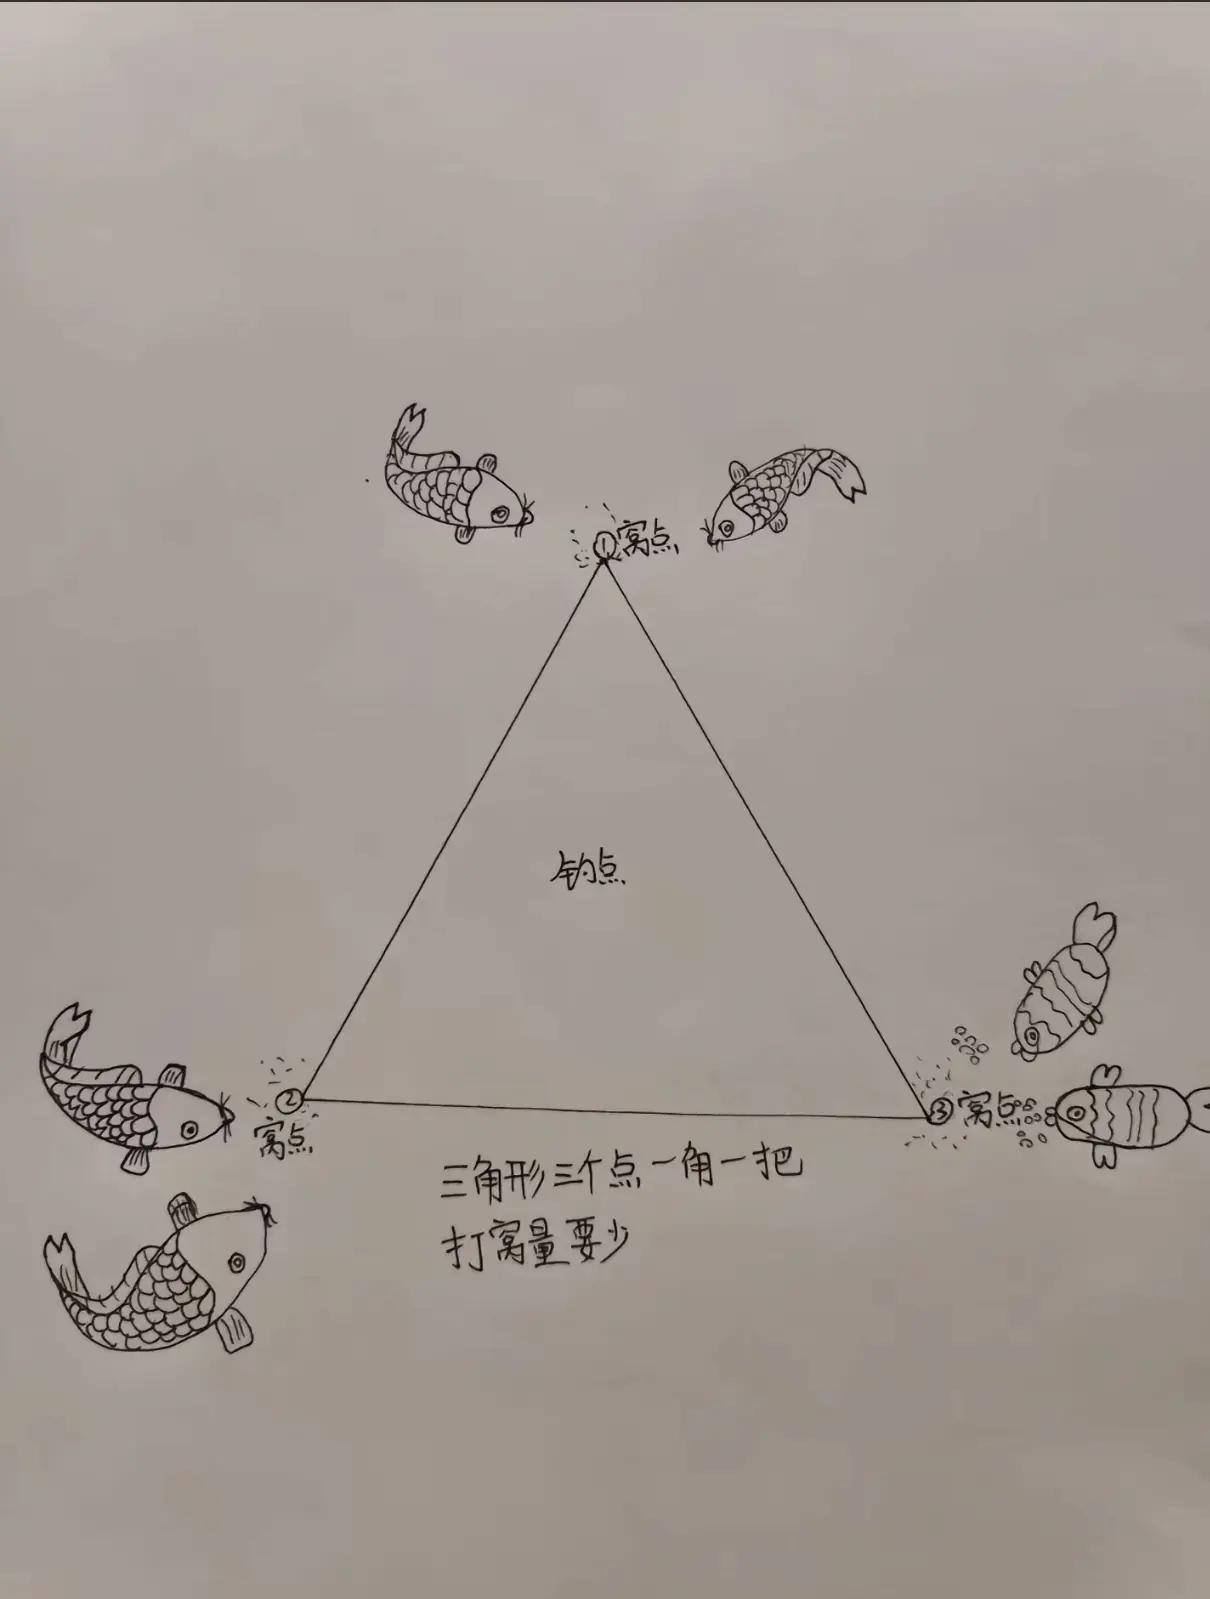 ①窝点
钓点
②
窝点
③窝点
三角形三个点一角一把
打窝量要少